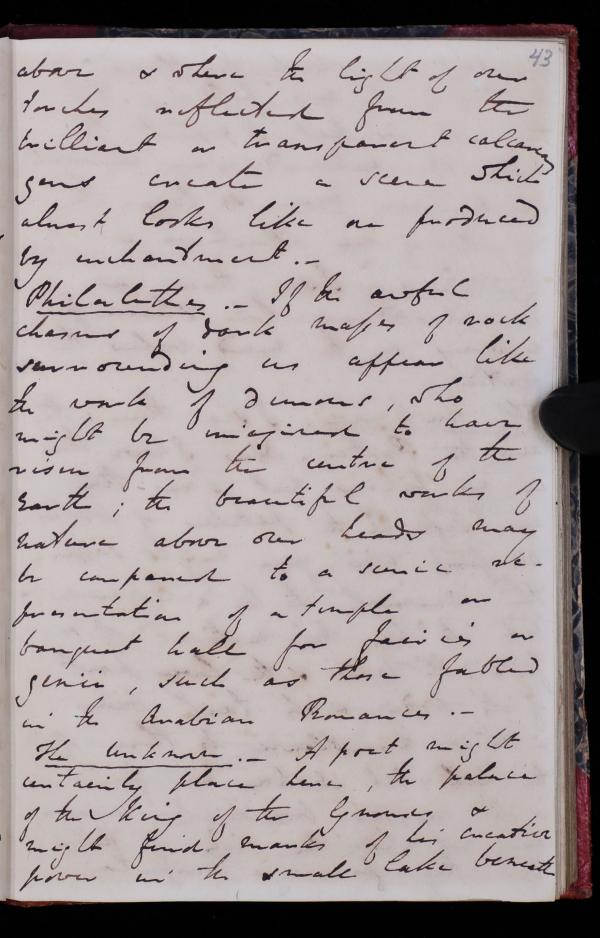 43
above & where the light of our
torches reflected from the
brilliant or transparent calcareous
gems create a scene which
almost looks like one produced
by enchantment. -
Philalethes. - If the awful
chasms of dark masses of rock
surrounding us appear like
the work of demons, who
might be imagined to have
risen from the centre of the
Earth; the beautiful works of
nature above our heads may
be compared to a scenic re-
presentation of a temple or
banquet hall for fairies or
genii, such as those fabled
in the Arabian Romances. -
The Unknown. - A poet might
certainly place here, the palace
of the King of the Gnomes &
might find marks of his creative
power in the small lake beneath